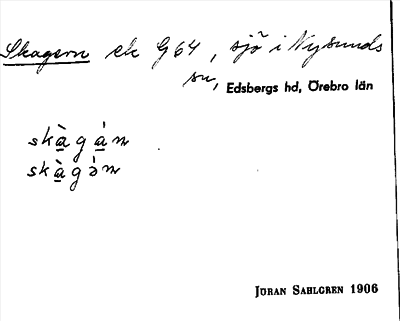 Skagern ek G64, sjö i Nysunds
sn, Edsbergs hd, Örebro län
skàgán
skàgə́n
JÖRAN SAHLGREN 1906